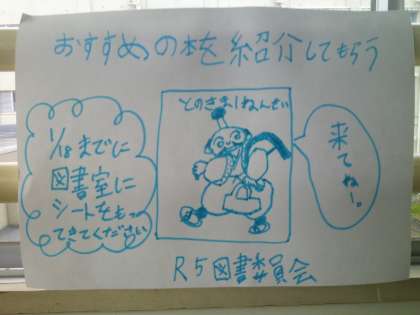 おすすめの本を紹介してもらう
1/18までに
図書室に
シートをもっ
てきてください
とのさま1ねんせい
来てねー。
R5図書委員会